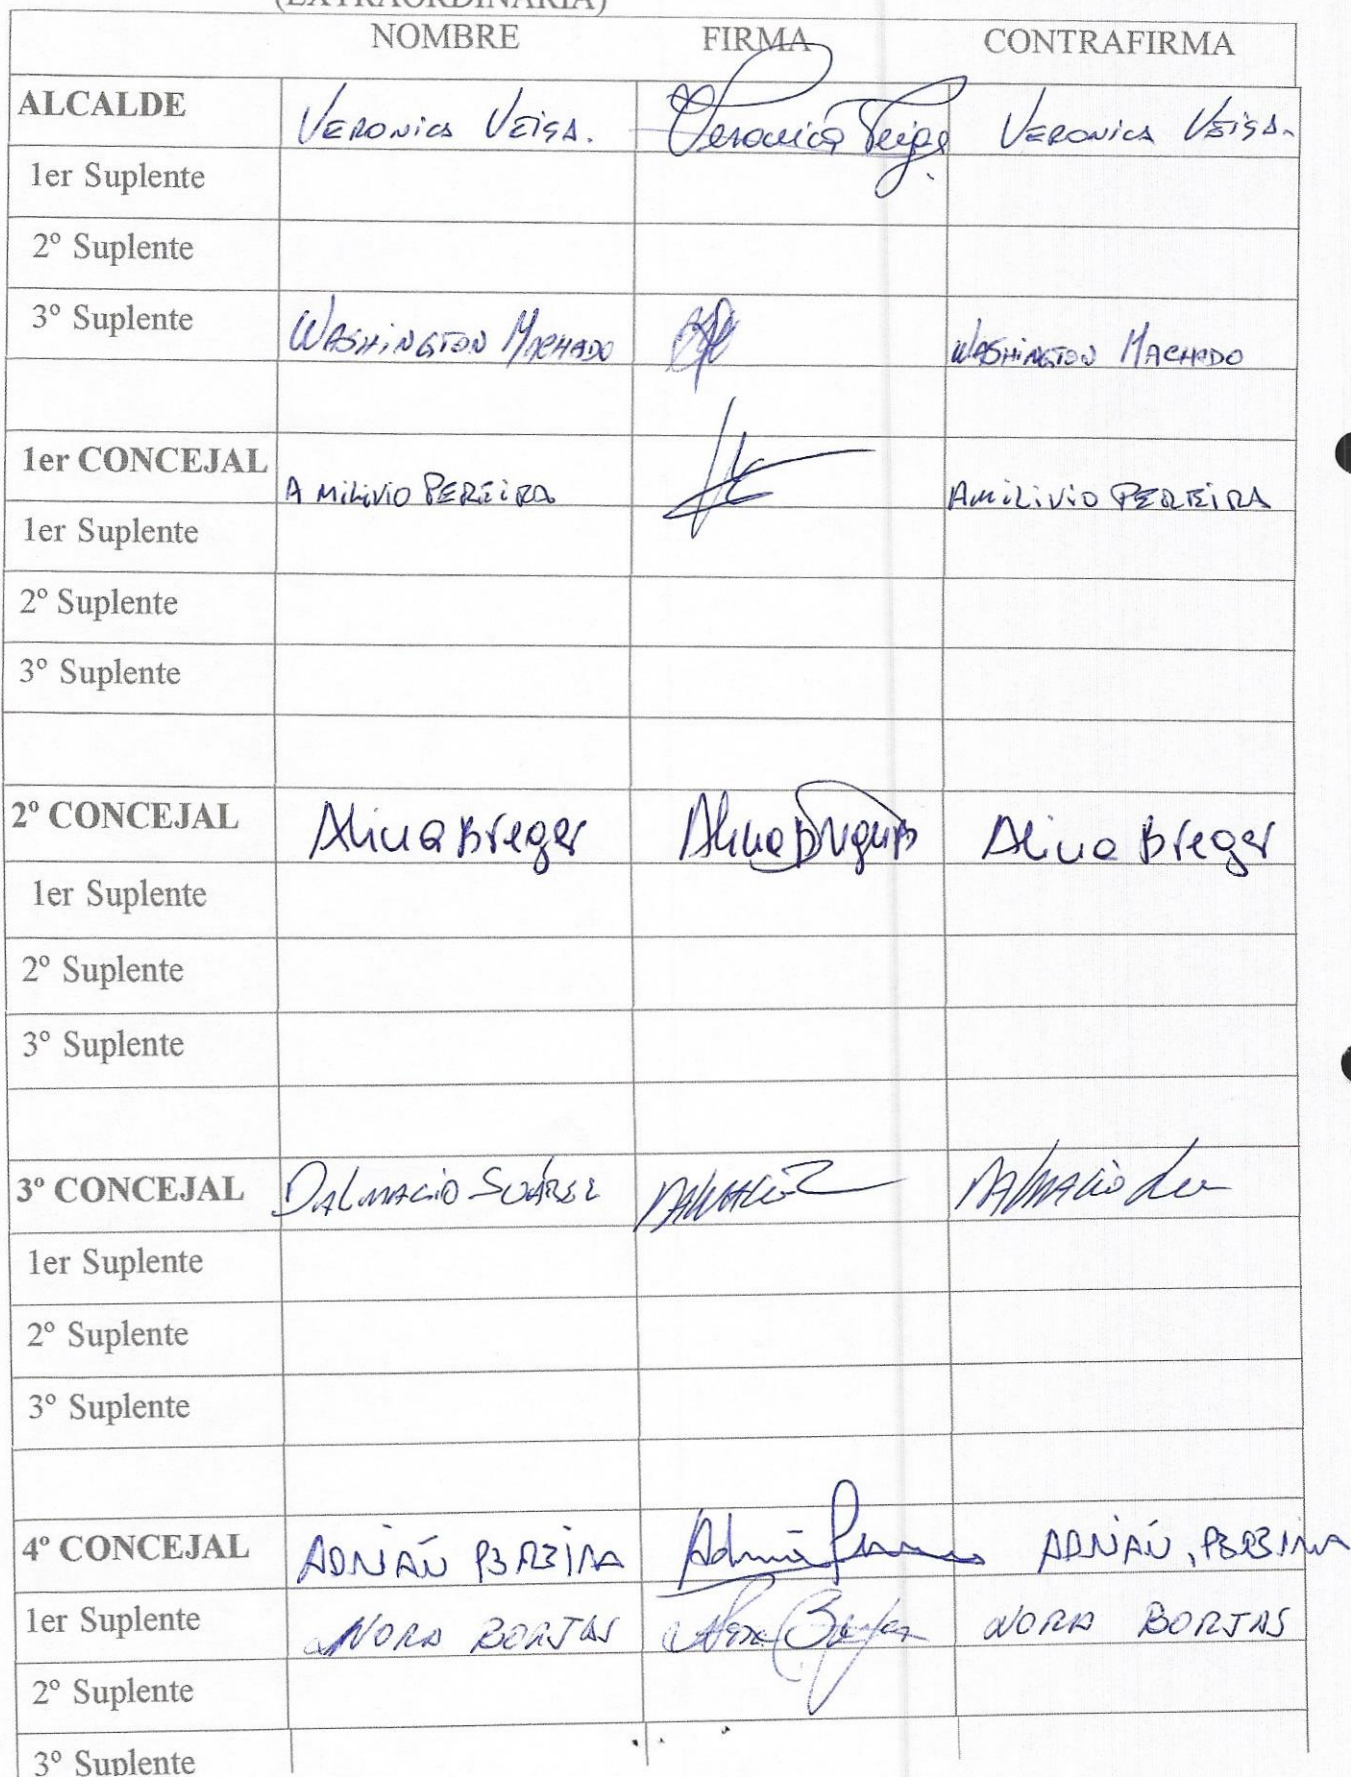 (EXTRAORDINARIA)
NOMBRE FIRMA CONTRAFIRMA
ALCALDE VERONICA VEIGA. Veronica Veiga VERONICA VEIGA.
1er Suplente
2º Suplente
3º Suplente WASHINGTON MACHADO WASHINGTON MACHADO
1er CONCEJAL AMILIVIO PEREIRA AMILIVIO PEREIRA
1er Suplente
2º Suplente
3º Suplente
2º CONCEJAL Alina Breger Alina Breger
1er Suplente
2º Suplente
3º Suplente
3º CONCEJAL DALMACIO SUÁREZ DALMACIO
1er Suplente
2º Suplente
3º Suplente
4º CONCEJAL ADRIÁN PEREIRA Adrián ADRIÁN, PEREIRA
1er Suplente NORA BORJAS Nora Borjas NORA BORJAS
2º Suplente
3º Suplente